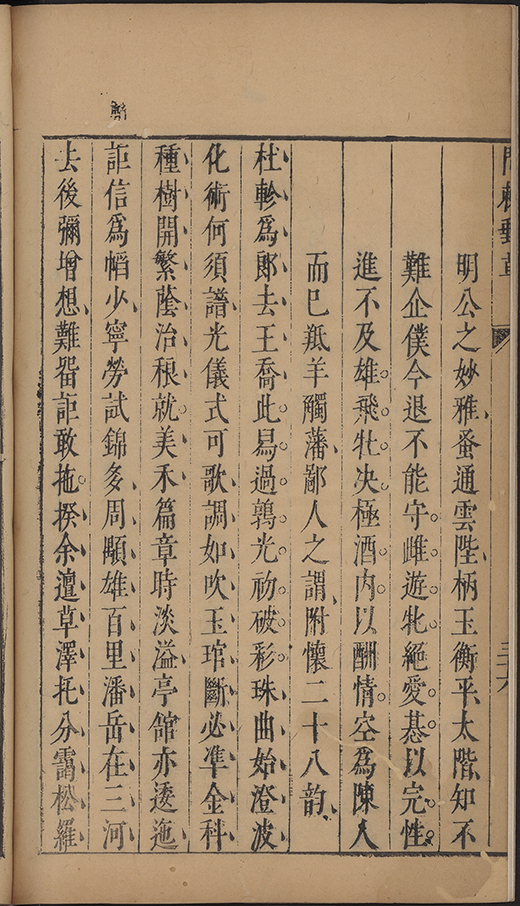 明公之妙雅蚤通雲陛柄玉衡平太階知不
難企僕今退不能守雌遊牝絕愛惎以完性
進不及雄飛牡决極酒内以酬情空為陳人
而已羝羊觸藩鄙人之謂附懷二十八韵
杜軫爲郎去王喬此舄過鶉光初破彩珠曲始澄波
化術何須譜光儀式可歌調如吹玉琯斷必凖金科
種樹開繁蔭治稂就美禾篇章時淡溢亭館亦逶迤
詎信爲幅少寧勞試錦多周顒雄百里潘岳在三河
去後彌增想難畱詎敢拖揆余邅草澤托分靄松羅